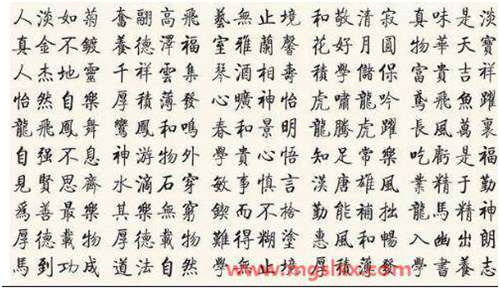 人淡如菊 奮翮高飛 藝無止境 和敬清寂 真味是淡
真金不鍍 養德澤福 室雅蘭馨 花好月圓 物華天寶
人杰地靈 千祥雲集 琴酒相壽 學儲保 富貴吉祥
怡然自樂 厚積薄發 心曠神怡 虎嘯龍吟 鳶飛魚躍
龍飛鳳舞 鸞鳳和鳴 春和景明 龍騰虎躍 長風萬裏
自强不息 神游物外 學貴心悟 知足常樂 吃虧是福
見賢思齊 水滴石穿 敏事慎言 漢唐雄風 業精于勤
爲善最樂 其樂無窮 鍥而不捨 勤能補拙 龍馬精神
厚德載物 厚德載物 難得糊塗 惠風和暢 入幽出朗
馬到功成 道法自然 學無止境 厚積薄發 學書養志
www.mgshhx.com